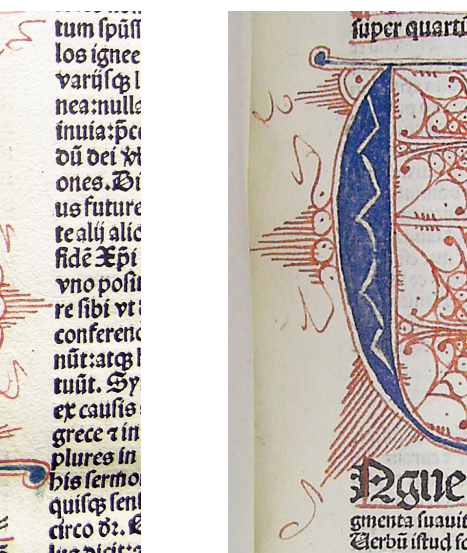 tum spūss
los ignee
varijsqꝫ l
nea:nulla
inuia:p̄c
dū dei v̄b
ones. Di
us future
te alij alic
fidē Xp̄i
vno posit
re sibi vt
conferenc
nūt:atqꝫ h
tuūt. Sy
ex causis
grece ⁊ in
plures in
his sermo
quisqꝫ sent
circo dr̄.
super quarti
Agne
gmenta suauit
Verbū istud